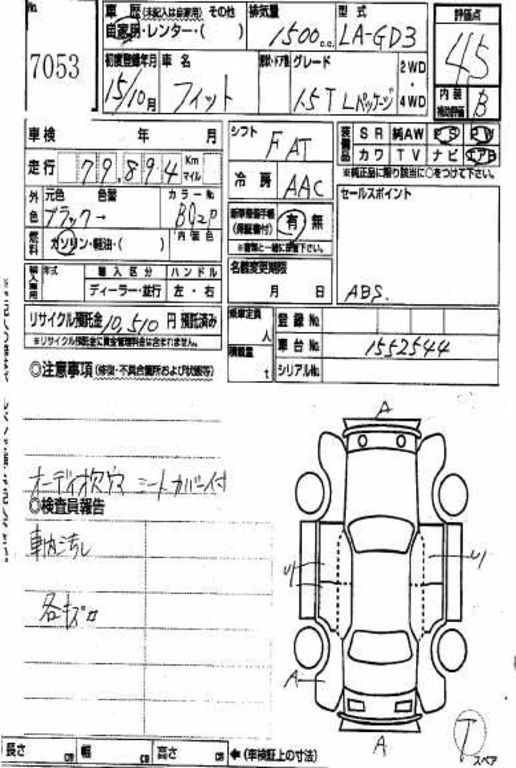 No.
7053
車歴 (未記入は自家用) その他
自家用・レンター・( )
排気量
1500 c.c.
型式
LA-GD3
評価点
4.5
内装
補助評価
B
初度登録年月
15/10月
車名
フィット
形状・ドア数
グレード
1.5T Lパッケージ
2WD
4WD
車検 年 月
走行 79,894 Km マイル
シフト
FAT
冷房
AAC
装備品
SR 純AW PS PW
カワ TV ナビ エアB
※純正品に限り該当に○をつけて下さい。
外色
元色 色替 カラーNo
ブラック→ B92P
燃料
ガソリン・軽油・( )
内装色
新車整備手帳
(保証書付)
有 無
※書類と一緒に保管下さい。
セールスポイント
ABS.
輸入車用
年式
輸入区分
ハンドル
ディーラー・並行
左・右
名義変更期限
月 日
リサイクル預託金 10,510 円 預託済み
※リサイクル預託金に資金管理料金は含まれません。
乗車定員
人
積載量
t
登録No
車台No. 1552544
シリアルNo.
◎注意事項 (修復・不具合箇所および状態等)
オーディオ欠穴 シートカバー付
◎検査員報告
車内汚れ
各キズ
A
A
A
T
スペア
長さ cm 幅 cm 高さ cm ←(車検証上の寸法)